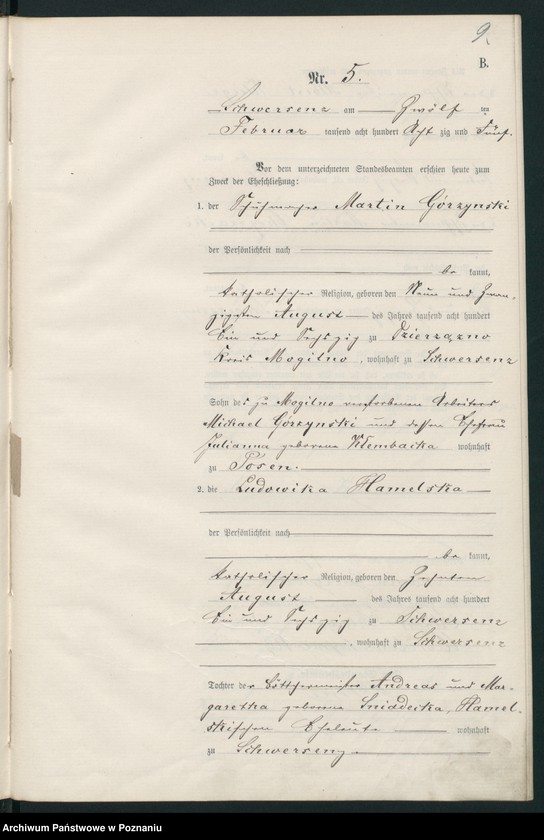 9
B.
Nr. 5.
Schwersenz am Zwölf ten
Februar tausend acht hundert Acht zig und Fünf.
Vor dem unterzeichneten Standesbeamten erschien heute zum
Zweck der Eheschließung:
1. der Schuhmacher Martin Górzynski
der Persönlichkeit nach
be kannt,
katholischer Religion, geboren den Neun und Zwan-
zigsten August des Jahres tausend acht hundert
Ein und Sechszig zu Dzierzazno
Kreis Mogilno, wohnhaft zu Schwersenz
Sohn des zu Mogilno verstorbenen Arbeiters
Michael Górzynski und dessen Ehefrau
Julianna geborene wohnhaft
zu Posen.
2. die Ludowika Hamelska
der Persönlichkeit nach
be kannt,
katholischer Religion, geboren den Zehnten
August des Jahres tausend acht hundert
Ein und Sechszig zu Schwersenz
, wohnhaft zu Schwersenz
Tochter der Böttchermeister Andreas und Mar-
garetha geborene Sniadecka, Hamel-
skischen Eheleute wohnhaft
zu Schwersenz
Archiwum Państwowe w Poznaniu